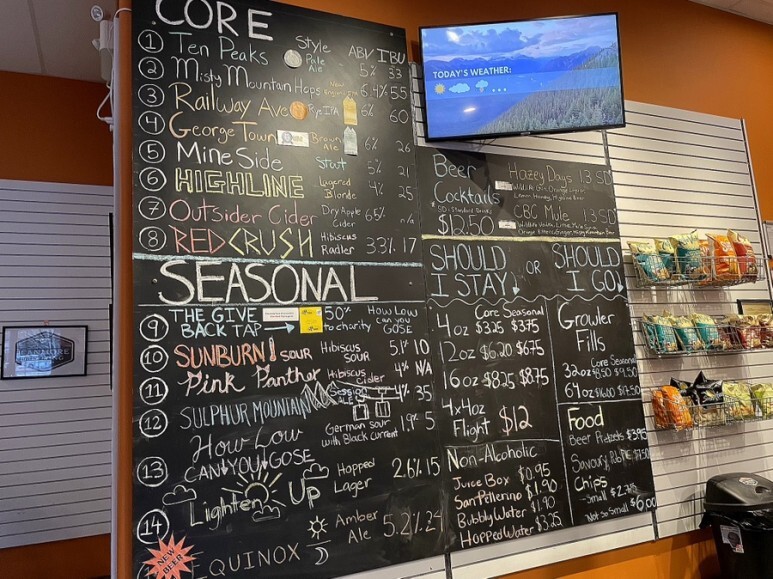 CORE
Style ABV IBU
1 Ten Peaks Pale Ale 5% 33
2 Misty Mountain Hops 6.4% 55
3 Railway Ave Rye IPA 6% 60
4 George Town Brown Ale 6% 26
5 Mine Side Stout 5% 21
6 HIGHLINE Lagered Blonde 4% 25
7 Outsider Cider Dry Apple Cider 6.5% n/a
8 RED CRUSH Hibiscus Radler 3.3% 17
SEASONAL
9 THE GIVE BACK TAP → 50% to charity How Low can you GOSE
10 SUNBURN! SOUR Hibiscus SOUR 5.1% 10
11 Pink Panther Hibiscus cider 4% N/A
12 SULPHUR MOUNTAIN Session ALE 4% 35
13 How Low CAN YOU GOSE German sour with Black currant 1.9% 5
14 Lighten Up Hopped Lager 2.6% 15
NEW BEER
EQUINOX Amber Ale 5.2% 24
TODAY'S WEATHER:
Beer Cocktails
*SD = Standard Drink
$12.50
Hazey Days 1.3 SD
CBC Mule 1.3 SD
SHOULD I STAY↓ OR SHOULD I GO↓
Core Seasonal
4oz $3.25 $3.75
12oz $6.20 $6.75
16oz $8.25 $8.75
4x4oz Flight $12
Non-Alcoholic
Juice Box $0.95
San Pellerino $1.90
Bubbly Water $1.90
Hopped Water $3.25
Growler Fills
Core Seasonal
32oz $8.50 $9.50
64oz $16.00 $17.50
Food
Beer Pretzels $3.95
Savoury
Chips
-Small
Not So Small $6.00
CANMORE